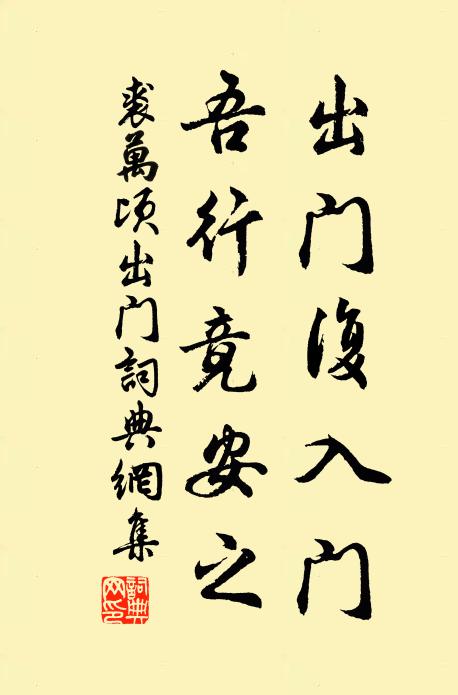 出门復入门
吾行竟安之
裘萬頃出门詞典網集
詞典网印